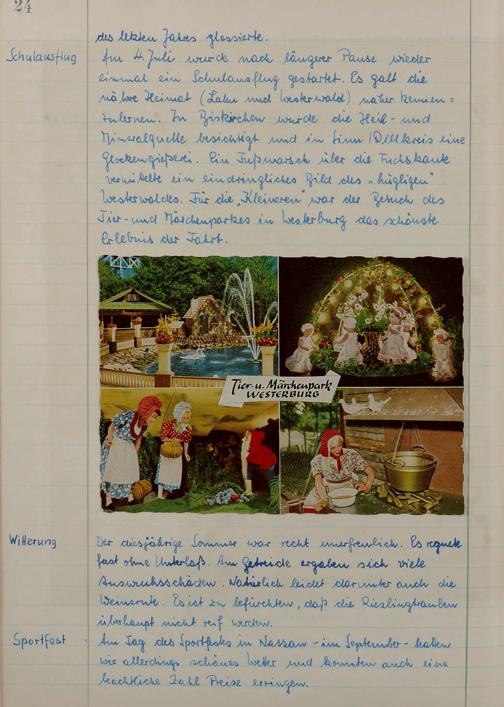 24
des letzten Jahres glossierte.
Schulausflug
Am 4. Juli wurde nach längerer Pause wieder
einmal ein Schulausflug gestartet. Es galt die
nähere Heimat (Lahn und Westerwald) näher kennen=
zulernen. In Biskirchen wurde die Heil- und
Mineralquelle besichtigt und in Sinn/Dillkreis eine
Glockengießerei. Ein Fußmarsch über die Fuchskaute
vermittelte ein eindringliches Bild des „hügligen"
Westerwaldes. Für die „Kleineren" war der Besuch des
Tier- und Märchenparkes in Westerburg das schönste
Erlebnis der Fahrt.
Tier- u. Märchenpark
WESTERBURG
Witterung
Der diesjährige Sommer war recht unerfreulich. Es regnete
fast ohne Unterlaß. Am Getreide ergaben sich viele
Auswuchsschäden. Natürlich leidet darunter auch die
Weinernte. Es ist zu befürchten, daß die Rieslingtrauben
überhaupt nicht reif werden.
Sportfest
Am Tag des Sportfestes in Nassau - im September - hatten
wir allerdings schönes Wetter und konnten auch eine
beachtliche Zahl Preise erringen.